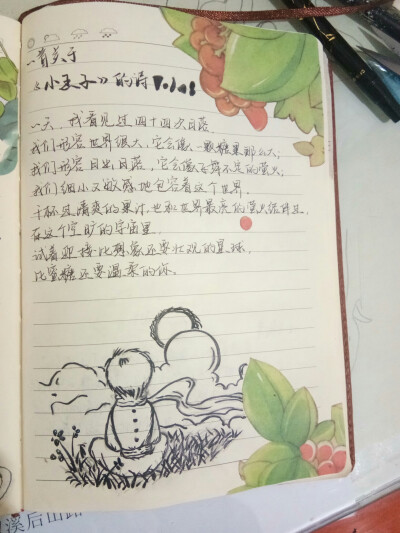 一首关于
《小王子》的诗
一天，我看见过四十四次日落
我们形容世界很大，它会像一颗糖果那么大；
我们形容日出日落，它会像飞舞不定的萤火；
我们细小又敏感地包容着这个世界。
干杯过清爽的果汁，也和世界最亮的萤火
在这个空旷的宇宙里，
试着迎接比想象还要壮观的星球，
比蜜糖还要温柔的你。
溪后山路